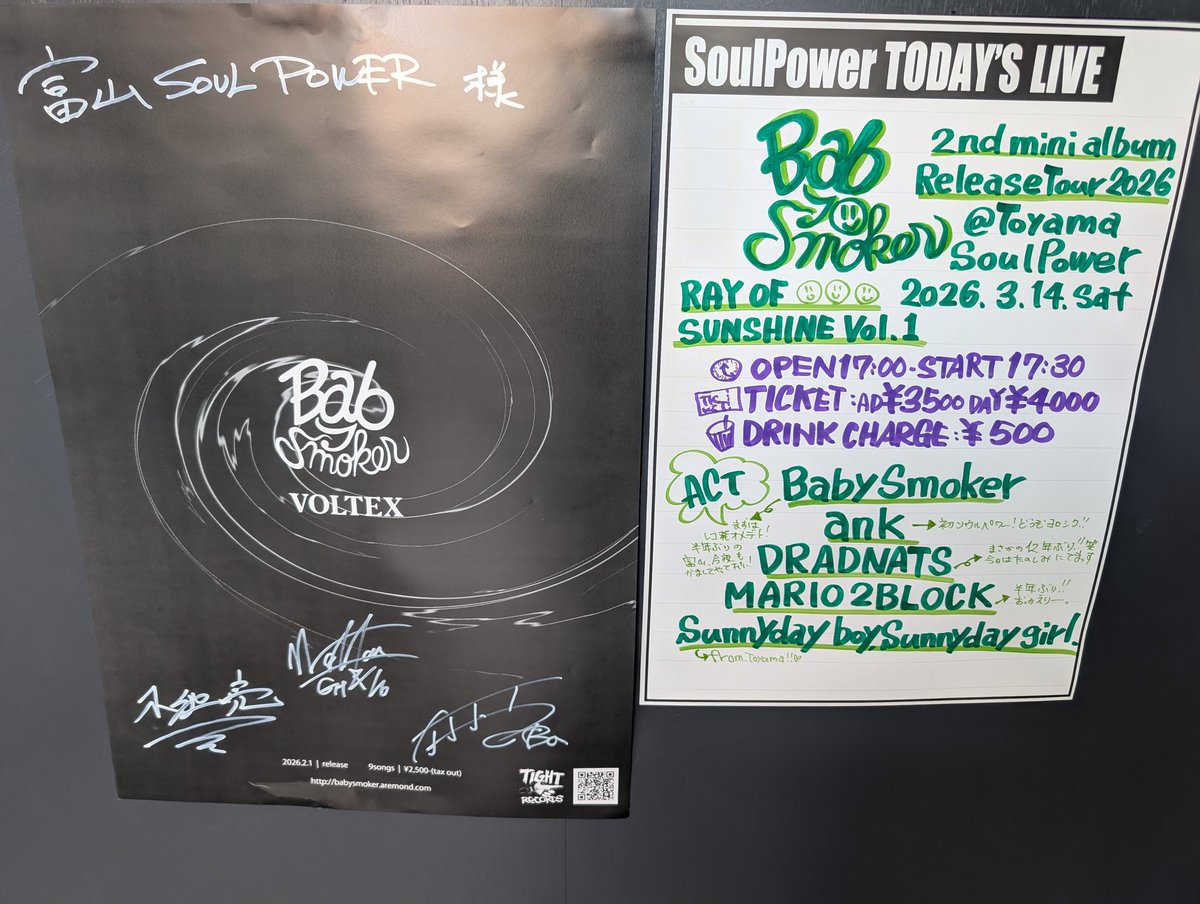 富山 SOUL POWER 様
Baby
Smoker
VOLTEX
2026.2.1 | release 9songs | ¥2,500-(tax out)
http://babysmoker.aremond.com
TIGHT
RECORDS
SoulPower TODAY'S LIVE
Baby
Smoker
2nd mini album
Release Tour 2026
@Toyama
SoulPower
RAY OF
SUNSHINE Vol.1
2026.3.14.sat
OPEN 17:00-START 17:30
TICKET:AD¥3500 DAY¥4000
DRINK CHARGE:¥500
ACT
Baby Smoker
まずは
レコ発オメデト!
半年ぶりの
富山、今夜も
かましてやて下さい!
ank
→初ソウルパワー!どうぞヨロシク!!
DRADNATS
まさかの12年ぶり!!笑
今日はたのしみにてます
MARIO2BLOCK
半年ぶり!!
おかえりー。
Sunnyday boy, Sunnyday girl.
from.Toyama!!♡